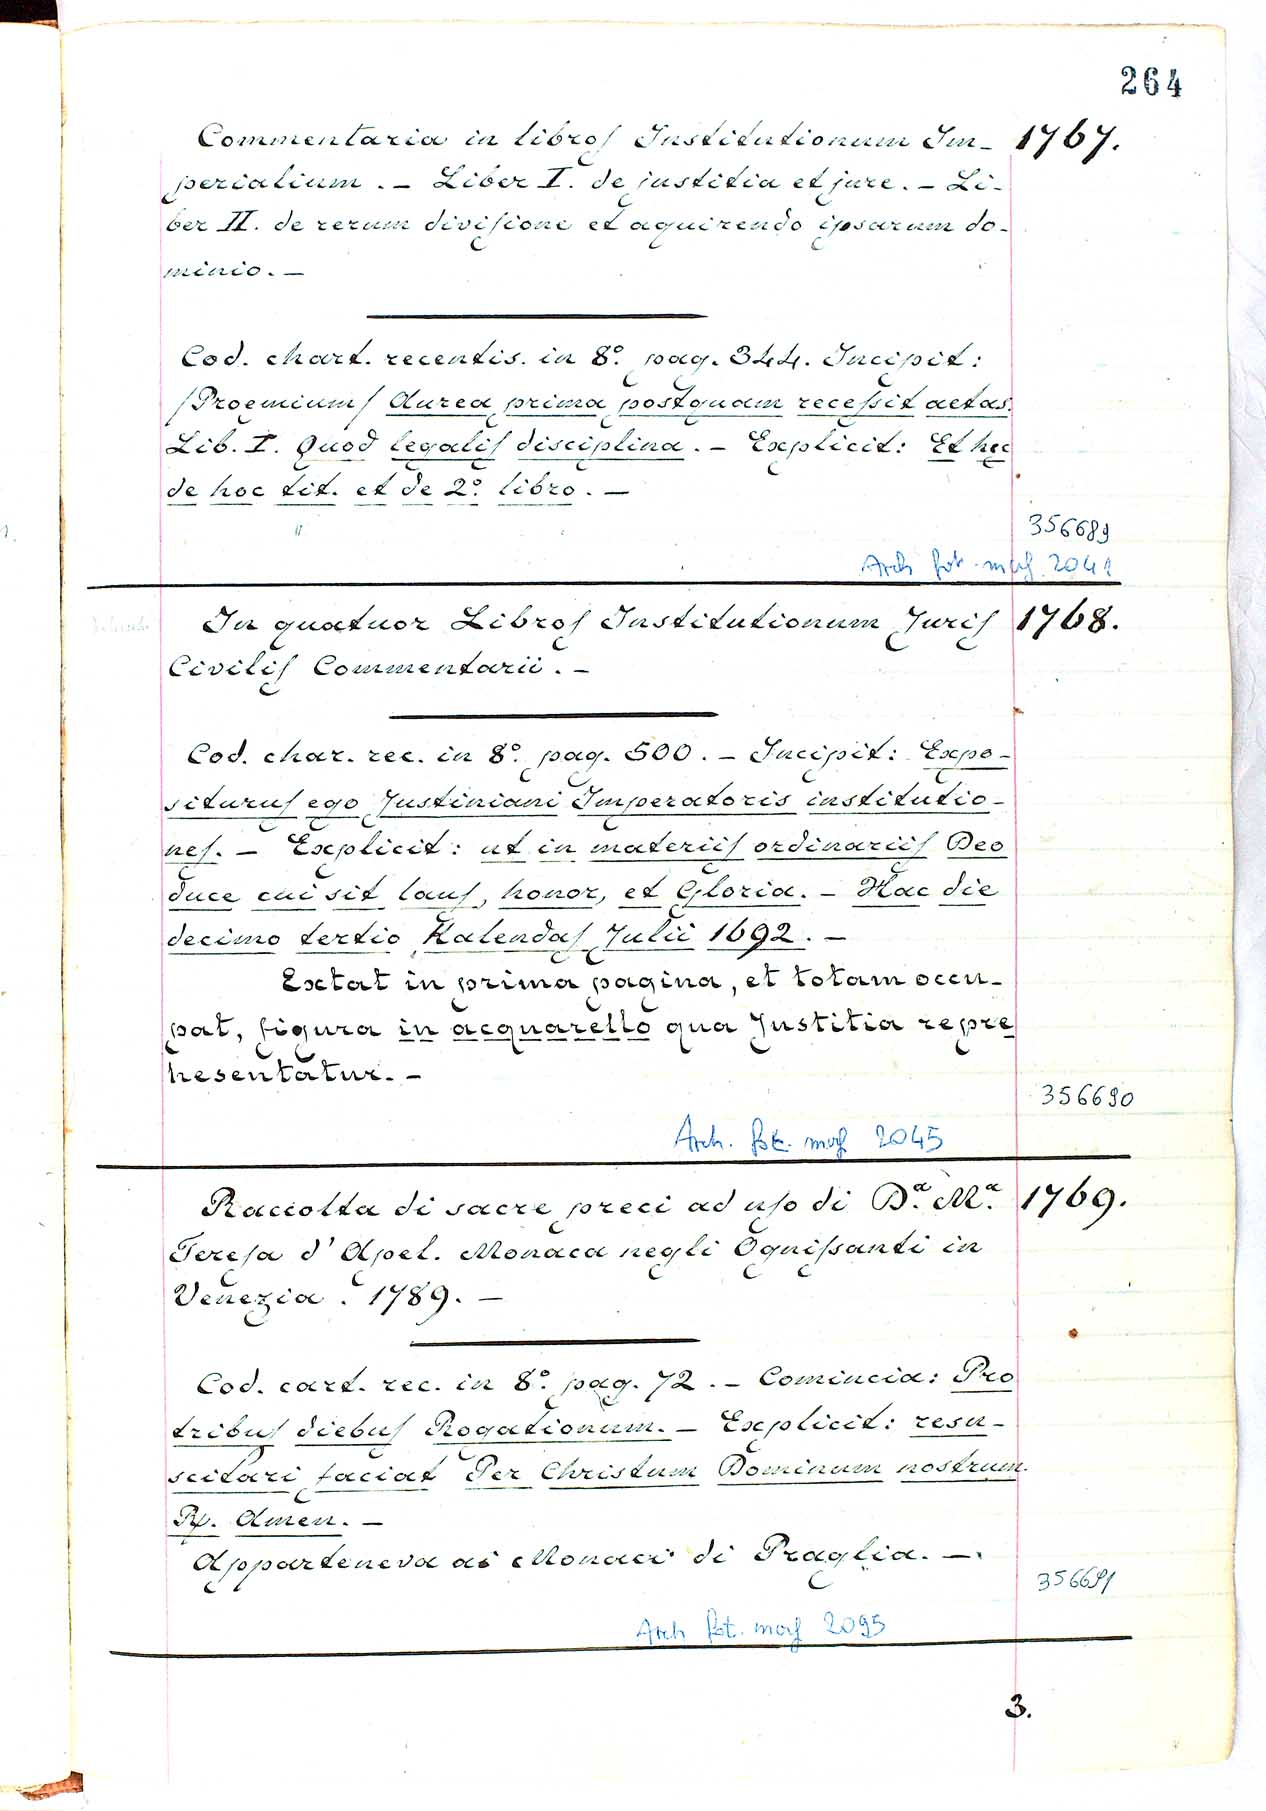 264
Commentaria in libros Institutionum Im- 1767.
perialium. - Liber I. de justitia et jure. - Li-
ber II. de rerum divisione et aquirendo ipsarum do-
minio. -
Cod. chart. recentis. in 8.° pag. 344. Incipit:
/Proemium/ Aurea prima postquam recessit aetas.
Lib. I. Quod legalis disciplina. - Explicit: Et hec
de hoc tit. et de 2.° libro. -
356689
Arch fot. mcf 2041
In quatuor Libros Institutionum Juris 1768.
Civilis Commentarii. -
Cod. char. rec. in 8.° pag. 500. - Incipit: Expo-
siturus ego Justiniani Imperatoris institutio-
nes. - Explicit: ut in materiis ordinariis Deo
duce cui sit laus, honor, et Gloria. - Hac die
decimo tertio Kalendas Julii 1692. -
Extat in prima pagina, et totam occu-
pat, figura in acquarello qua Justitia repre
hesentatur. -
356690
Arch. fot. mcf 2045
Raccolta di sacre preci ad uso di D.ª M.ª 1769.
Teresa d' Apel. Monaca negli Ognissanti in
Venezia. 1789. -
Cod. cart. rec. in 8.° pag. 72. - Comincia: Pro
tribus diebus Rogationum. - Explicit: resu-
scitari faciat Per Christum Dominum nostrum.
Rp. Amen. -
Apparteneva ai Monaci di Praglia. -
356691
Arch fot. mcf 2095
3.